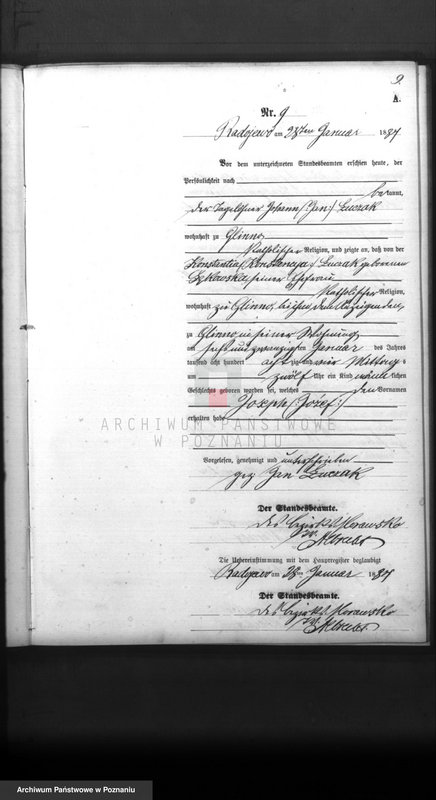 9.
A.
Nr. 9
Radojewo am 28ten Januar 1887
Vor dem unterzeichneten Standesbeamten erschien heute, der
Persönlichkeit nach
bekannt,
der Tagelöhner Johann /:Jan:/ Łuczak
wohnhaft zu Glinno
katholischer Religion, und zeigte an, daß von der
Konstantia /:Konstancja:/ Łuczak geborenen
seiner Ehefrau
katholischer Religion,
wohnhaft zu Glinno, bei ihm dem Anzeigenden,
zu Glinno in seiner Wohnung
am sechsundzwanzigsten Januar des Jahres
tausend acht hundert acht Mittags
um zwölf Uhr ein Kind männlichen
Geschlechts geboren worden sei, welches den Vornamen
Joseph /:Józef:/
erhalten habe
Vorgelesen, genehmigt und unterschrieben
gez Jan Łuczak
Der Standesbeamte.
des Bezirks Morawsko
Die Uebereinstimmung mit dem Hauptregister beglaubigt
Radojewo am 28ten Januar 1887
Der Standesbeamte.
des Bezirks Morawsko
ARCHIWUM PAŃSTWOWE
W POZNANIU
Archiwum Państwowe w Poznaniu